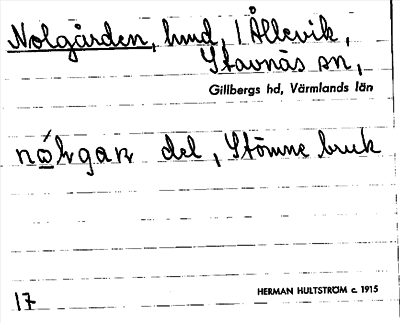 Nolgården, hmd, i Ållevik,
Stavnäs sn,
Gillbergs hd, Värmlands län
del, Stömne bruk
17
HERMAN HULTSTRÖM c. 1915